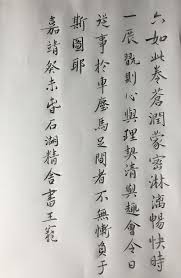 六如此卷蒼潤蒙密淋漓暢快時
一展翫則心與理契情與趣會今日
從事於車塵馬足間者不無慚負于
斯圖耶
嘉靖癸未春石湖精舍書王寵